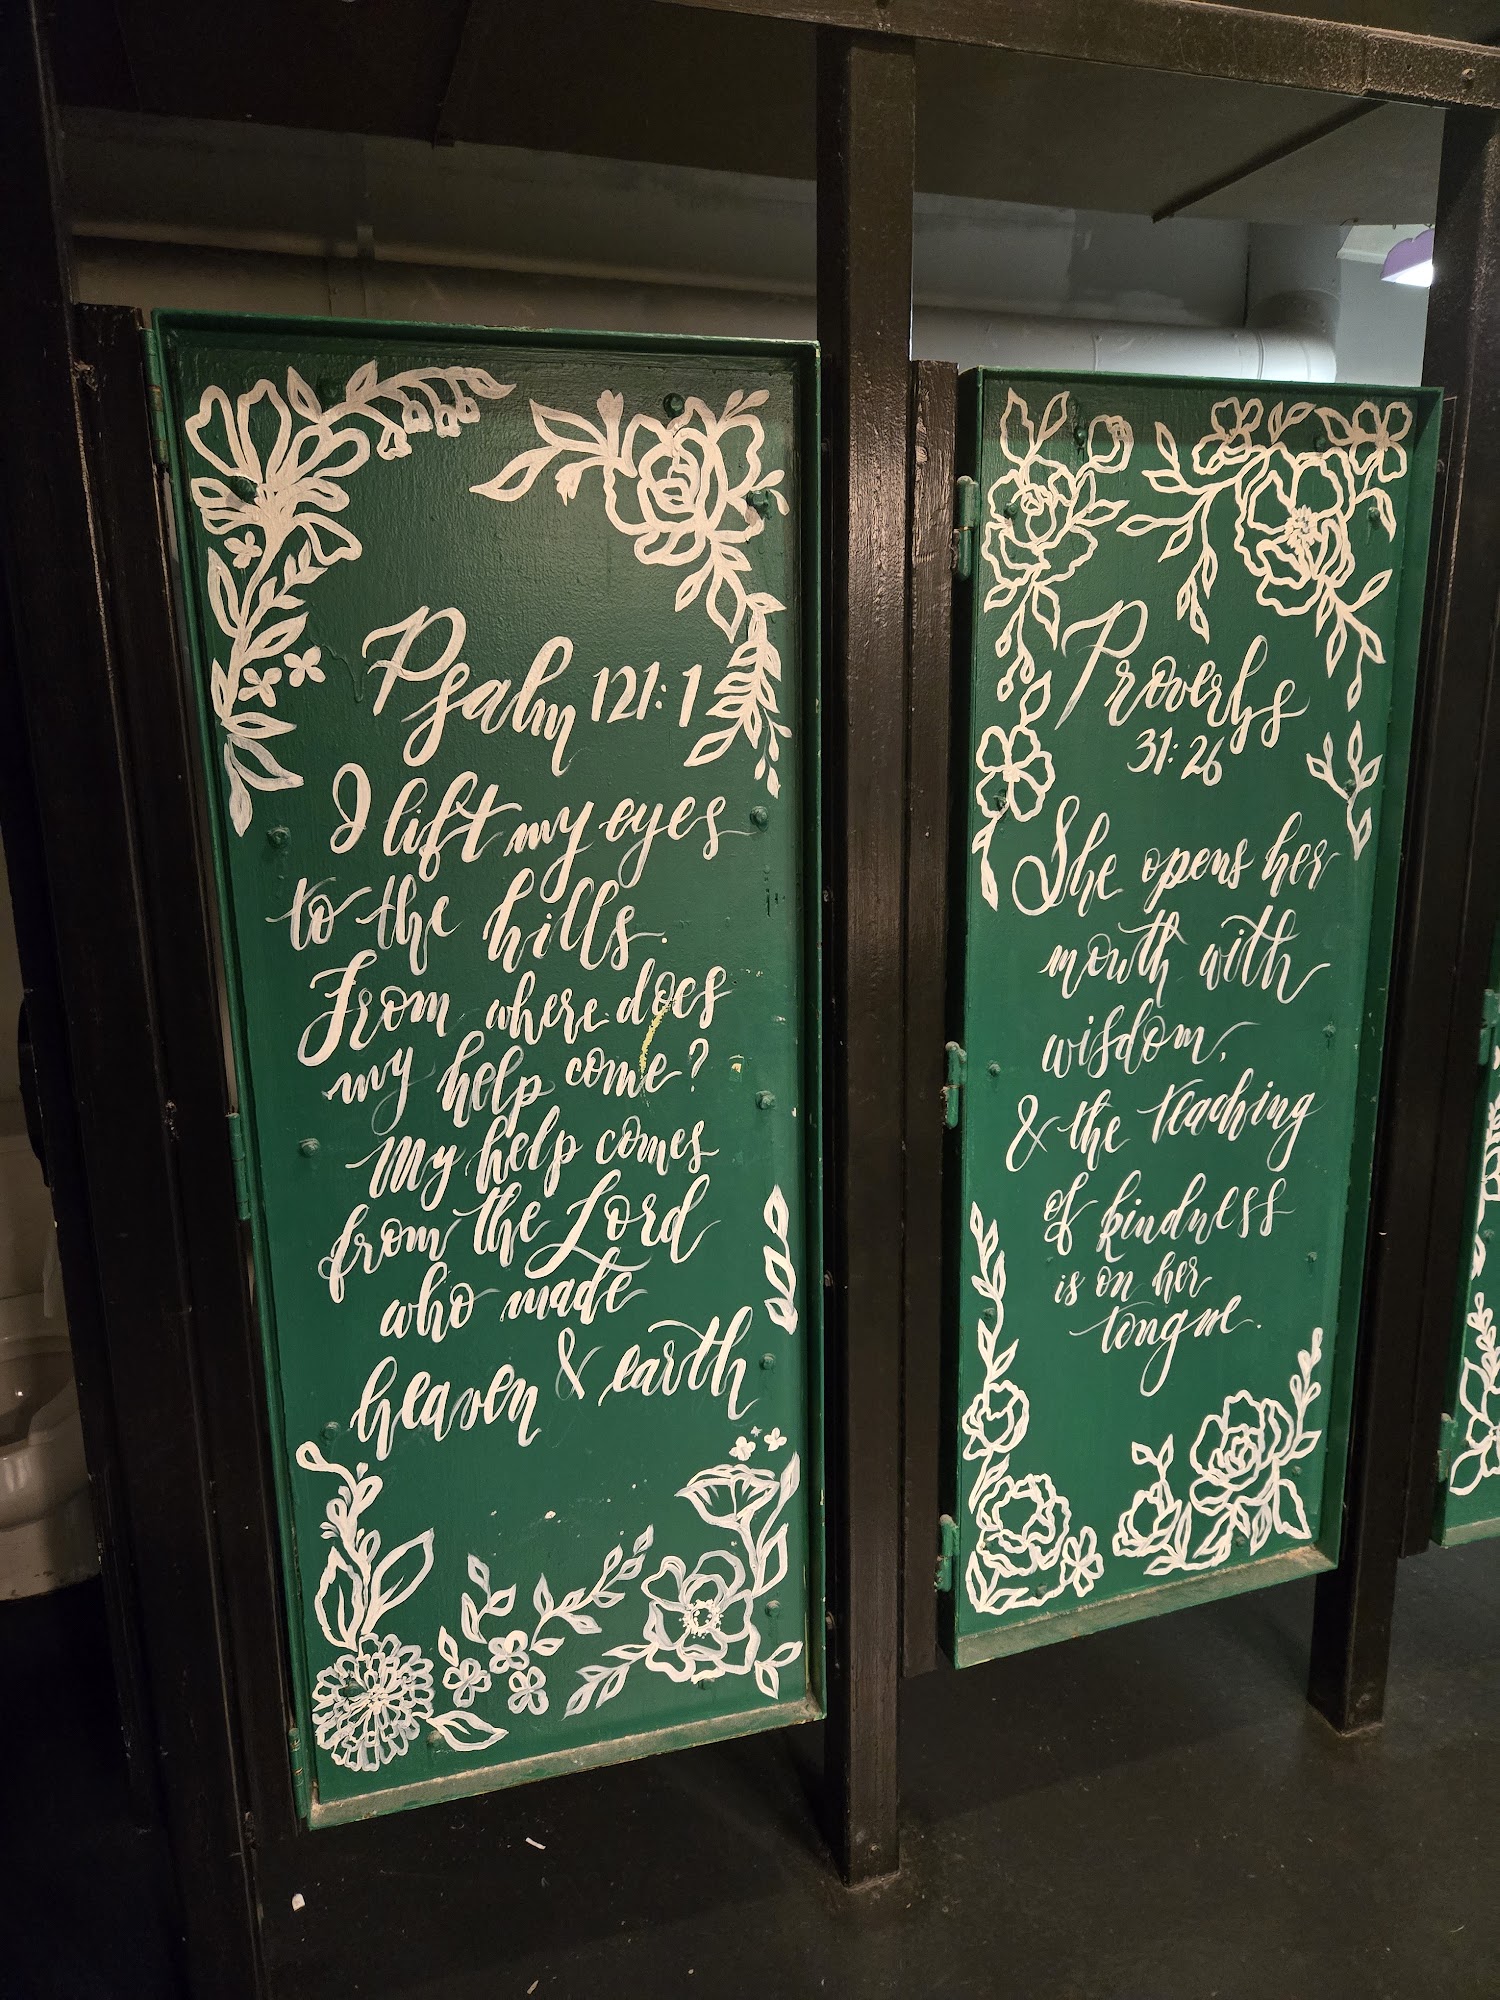 Psalm 121:1
I lift my eyes
to the hills.
From where does
my help come?
My help comes
from the Lord
who made
heaven & earth
Proverbs
31:26
She opens her
mouth with
wisdom,
& the teaching
of kindness
is on her
tongue.